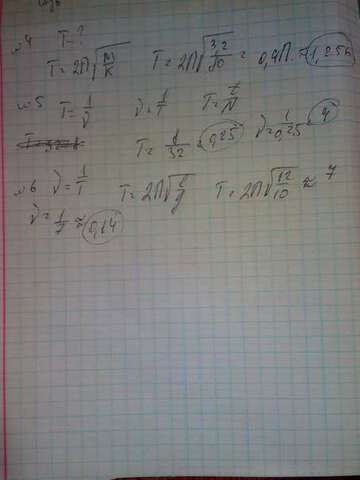 №4 T-?
T=2П√(m/k) T=2П√(3,2/80)=0,4П≈1,256
№5 T=1/ν ν=1/T T=t/N
T=8/32=0,25 ν=1/0,25=4
№6 ν=1/T T=2П√(l/g) T=2П√(12/10)≈7
ν=1/7≈0,14